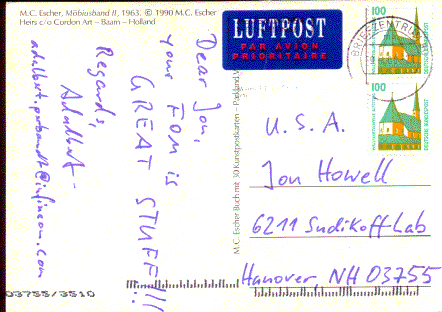 M.C. Escher, Möbiusband II, 1963. © 1990 M.C. Escher
Heirs c/o Cordon Art – Baarn – Holland
Dear Jon,
your FOM is
GREAT STUFF!!!
Regards,
Adalbert
M.C. Escher Buch mit 30 Kunstpostkarten –
LUFTPOST
PAR AVION
PRIORITAIRE
BRIEFZENTRUM
100
100
U.S.A.
Jon Howell
6211 Sudikoff Lab
Hanover, NH 03755
03755/3510